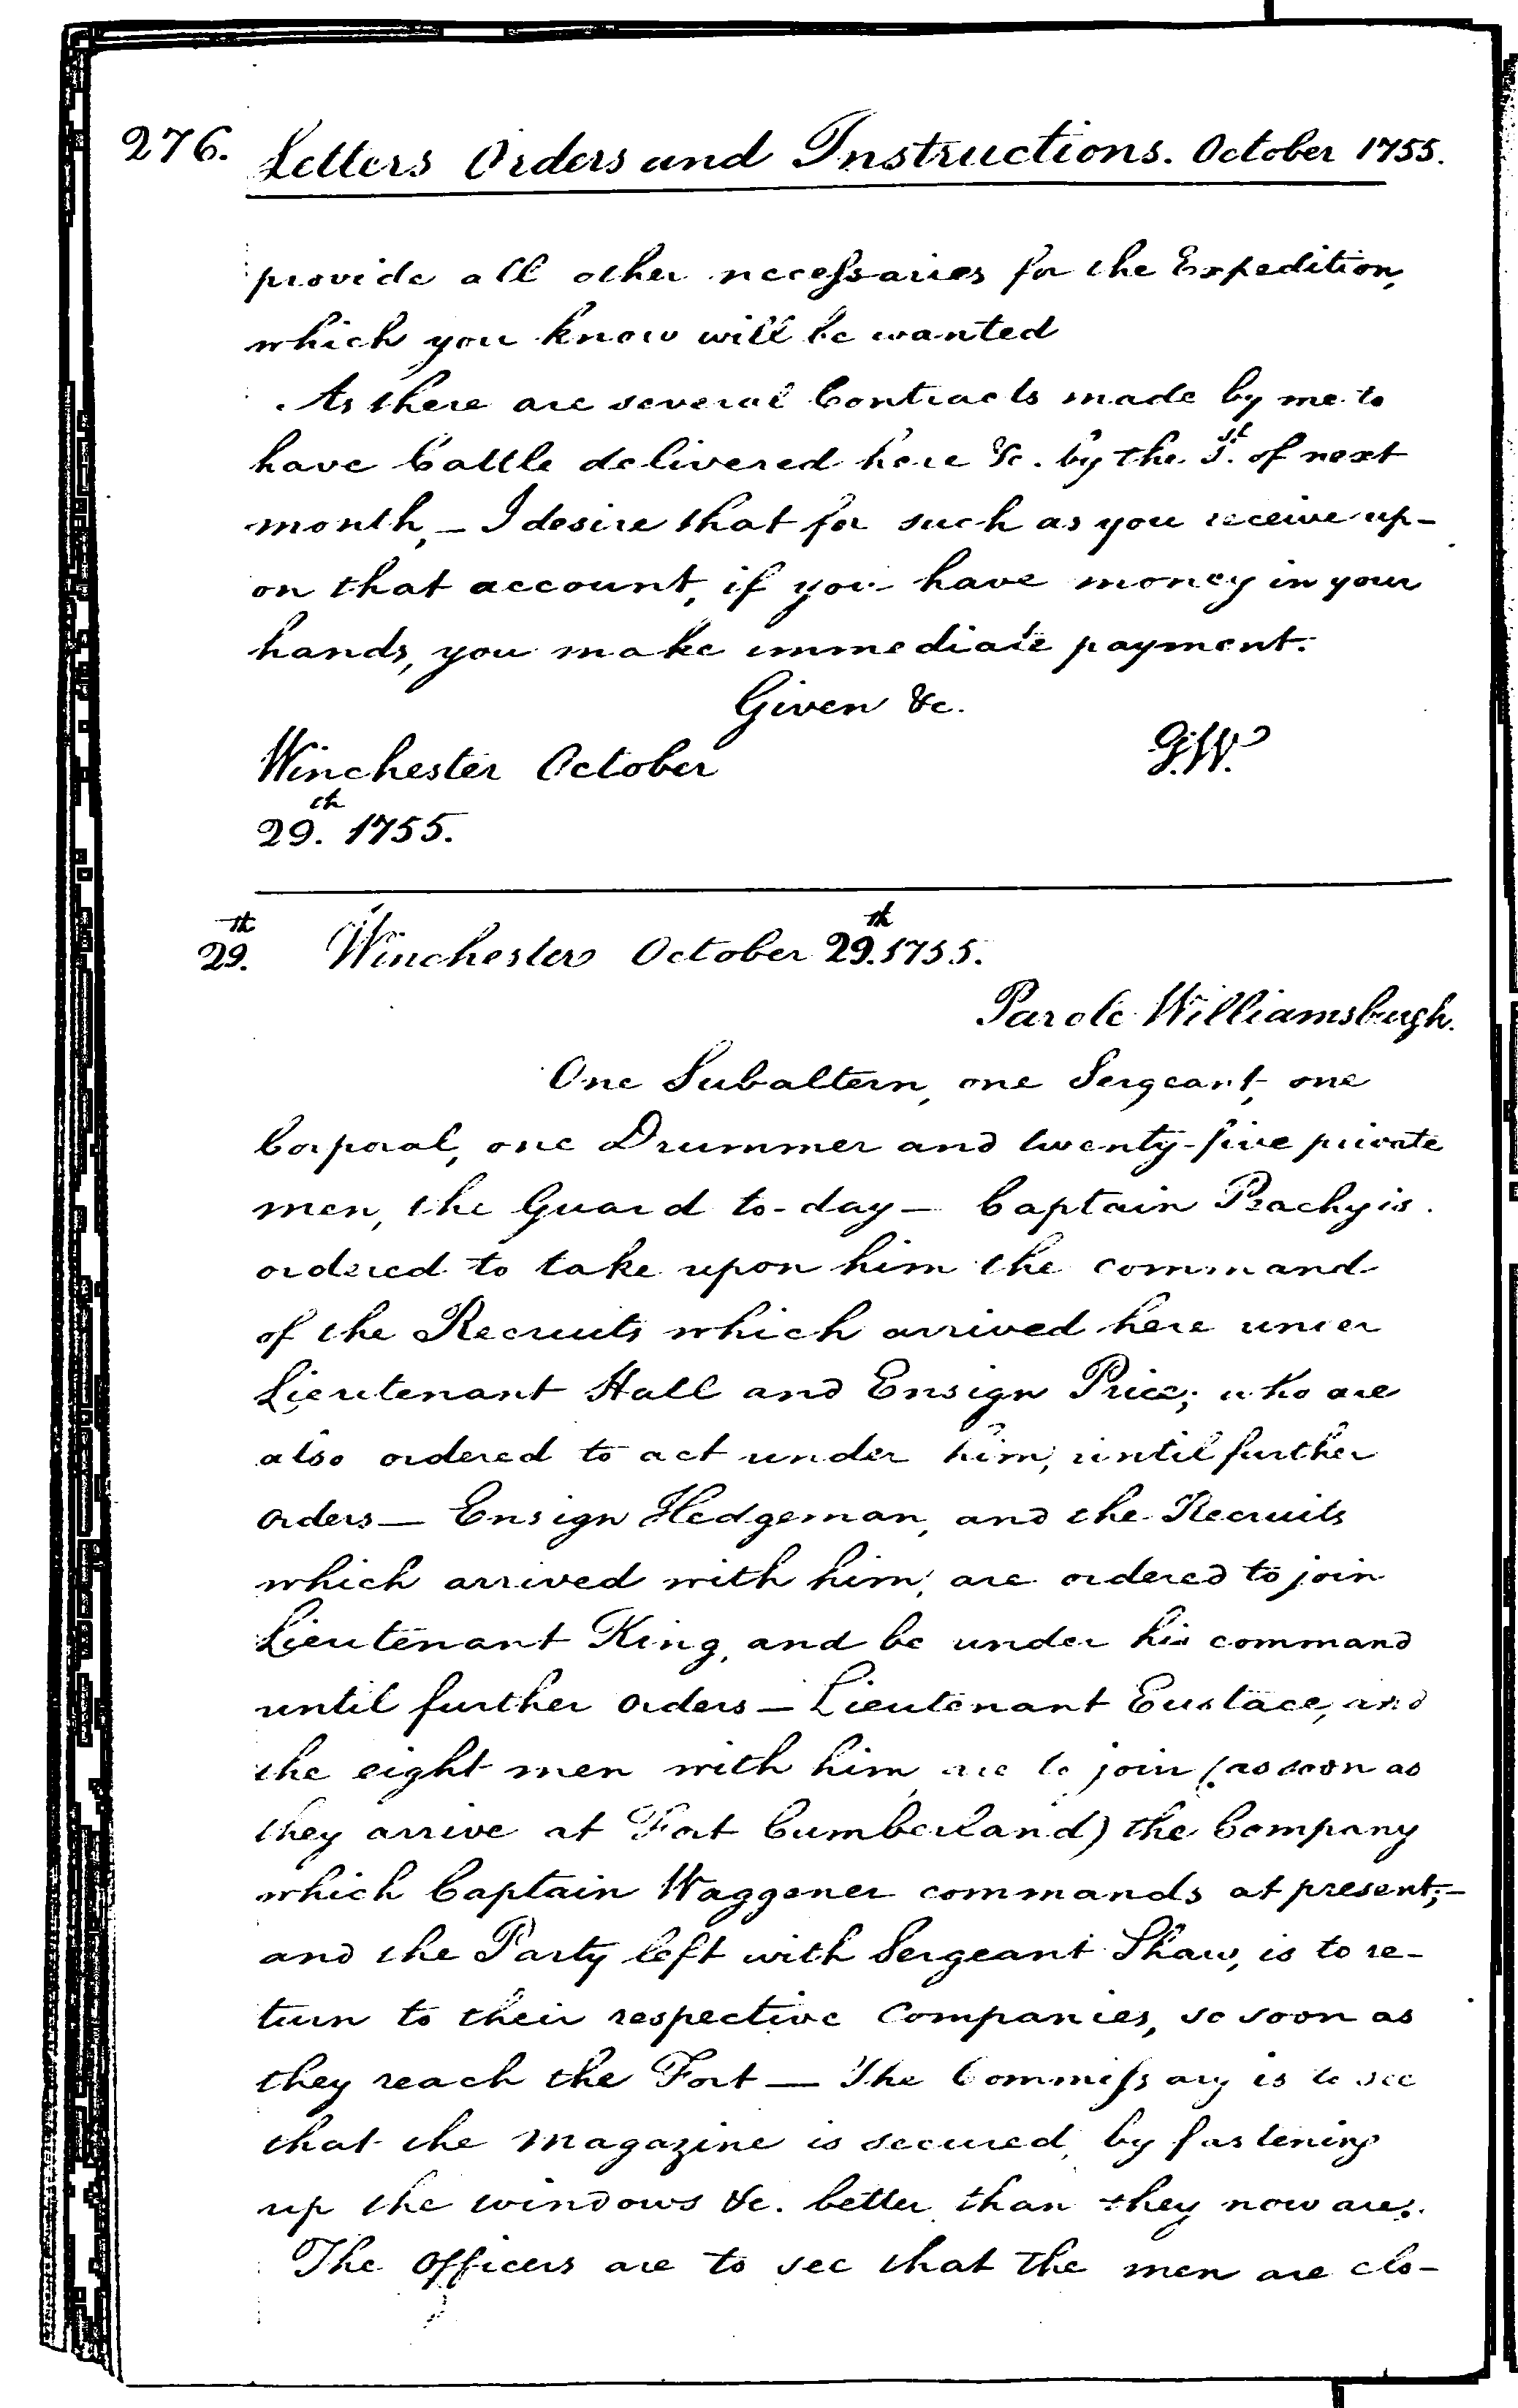 276. Letters Orders and Instructions. October 1755.
provide all other necessaries for the Expedition,
which you know will be wanted
As there are several Contracts made by me to
have Cattle delivered here &c. by the 1st. of next
month, — I desire that for such as you receive up-
on that account, if you have money in your
hands, you make immediate payment.
Given &c.
G.W.
Winchester October
29th. 1755.
29th. Winchester October 29th. 1755.
Parole Williamsburgh.
One Subaltern, one Sergeant, one
Corporal, one Drummer and twenty-five private
men, the Guard to-day — Captain Peachy is
ordered to take upon him the command
of the Recruits which arrived here under
Lieutenant Hall and Ensign Price; who are
also ordered to act under him, until further
orders — Ensign Hedgeman, and the Recruits
which arrived with him, are ordered to join
Lieutenant King, and be under his command
until further orders — Lieutenant Eustace, and
the eight men with him, are to join (as soon as
they arrive at Fort Cumberland) the Company
which Captain Waggener commands at present; —
and the Party left with Sergeant Shaw, is to re-
turn to their respective Companies, so soon as
they reach the Fort — The Commissary is to see
that the magazine is secured, by fastening
up the windows &c. better than they now are.
The Officers are to see that the men are clo-